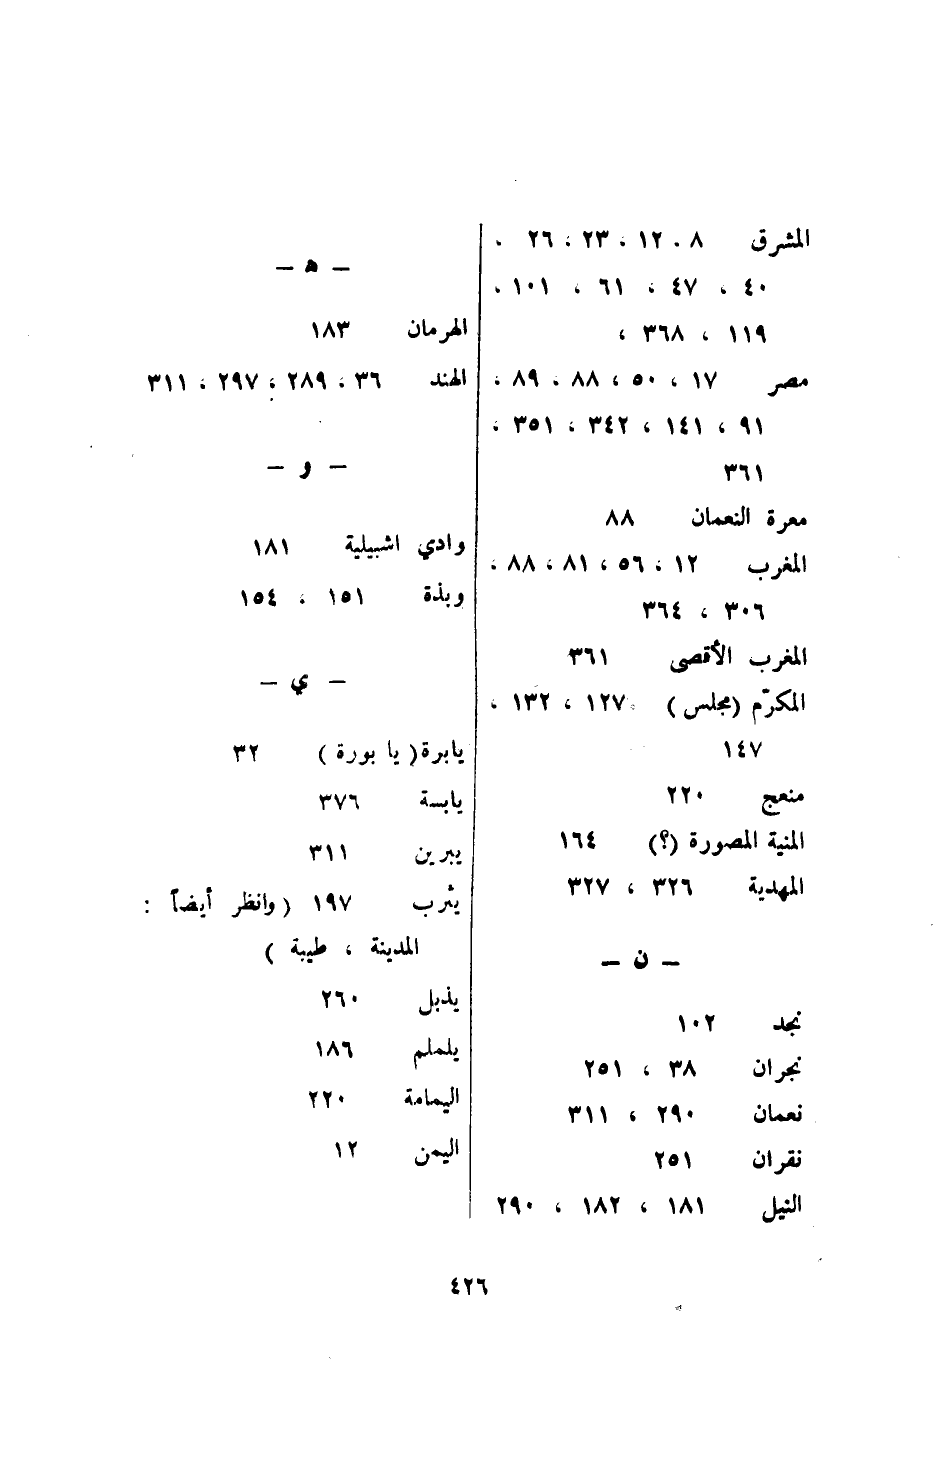 المشرق ٨ ، ١٢ ، ٢٣ ، ٢٦ ،
٤٠ ، ٤٧ ، ٦١ ، ١٠١ ،
١١٩ ، ٣٦٨ ،
مصر ١٧ ، ٥٠ ، ٨٨ ، ٨٩ ،
٩١ ، ١٤١ ، ٣٤٢ ، ٣٥١ ،
٣٦١
معرة النعمان ٨٨
المغرب ١٢ ، ٥٦ ، ٨١ ، ٨٨ ،
٣٠٦ ، ٣٦٤
المغرب الأقصى ٣٦١
المكرّم (مجلس) ١٢٧ ، ١٣٢ ،
١٤٧
منعج ٢٢٠
المنية المصورة (؟) ١٦٤
المهدية ٣٢٦ ، ٣٢٧
– ن –
نجد ١٠٢
نجران ٣٨ ، ٢٥١
نعمان ٢٩٠ ، ٣١١
نقران ٢٥١
النيل ١٨١ ، ١٨٢ ، ٢٩٠
– ه –
الهرمان ١٨٣
الهند ٣٦ ، ٢٨٩ ، ٢٩٧ ، ٣١١
– و –
وادي اشبيلية ١٨١
وبذة ١٥١ ، ١٥٤
– ي –
يابرة (يا بورة) ٣٢
يابسة ٣٧٦
يبرين ٣١١
يثرب ١٩٧ (وانظر أيضاً :
المدينة ، طيبة )
يذبل ٢٦٠
يلملم ١٨٦
اليمامة ٢٢٠
اليمن ١٢
٤٢٦